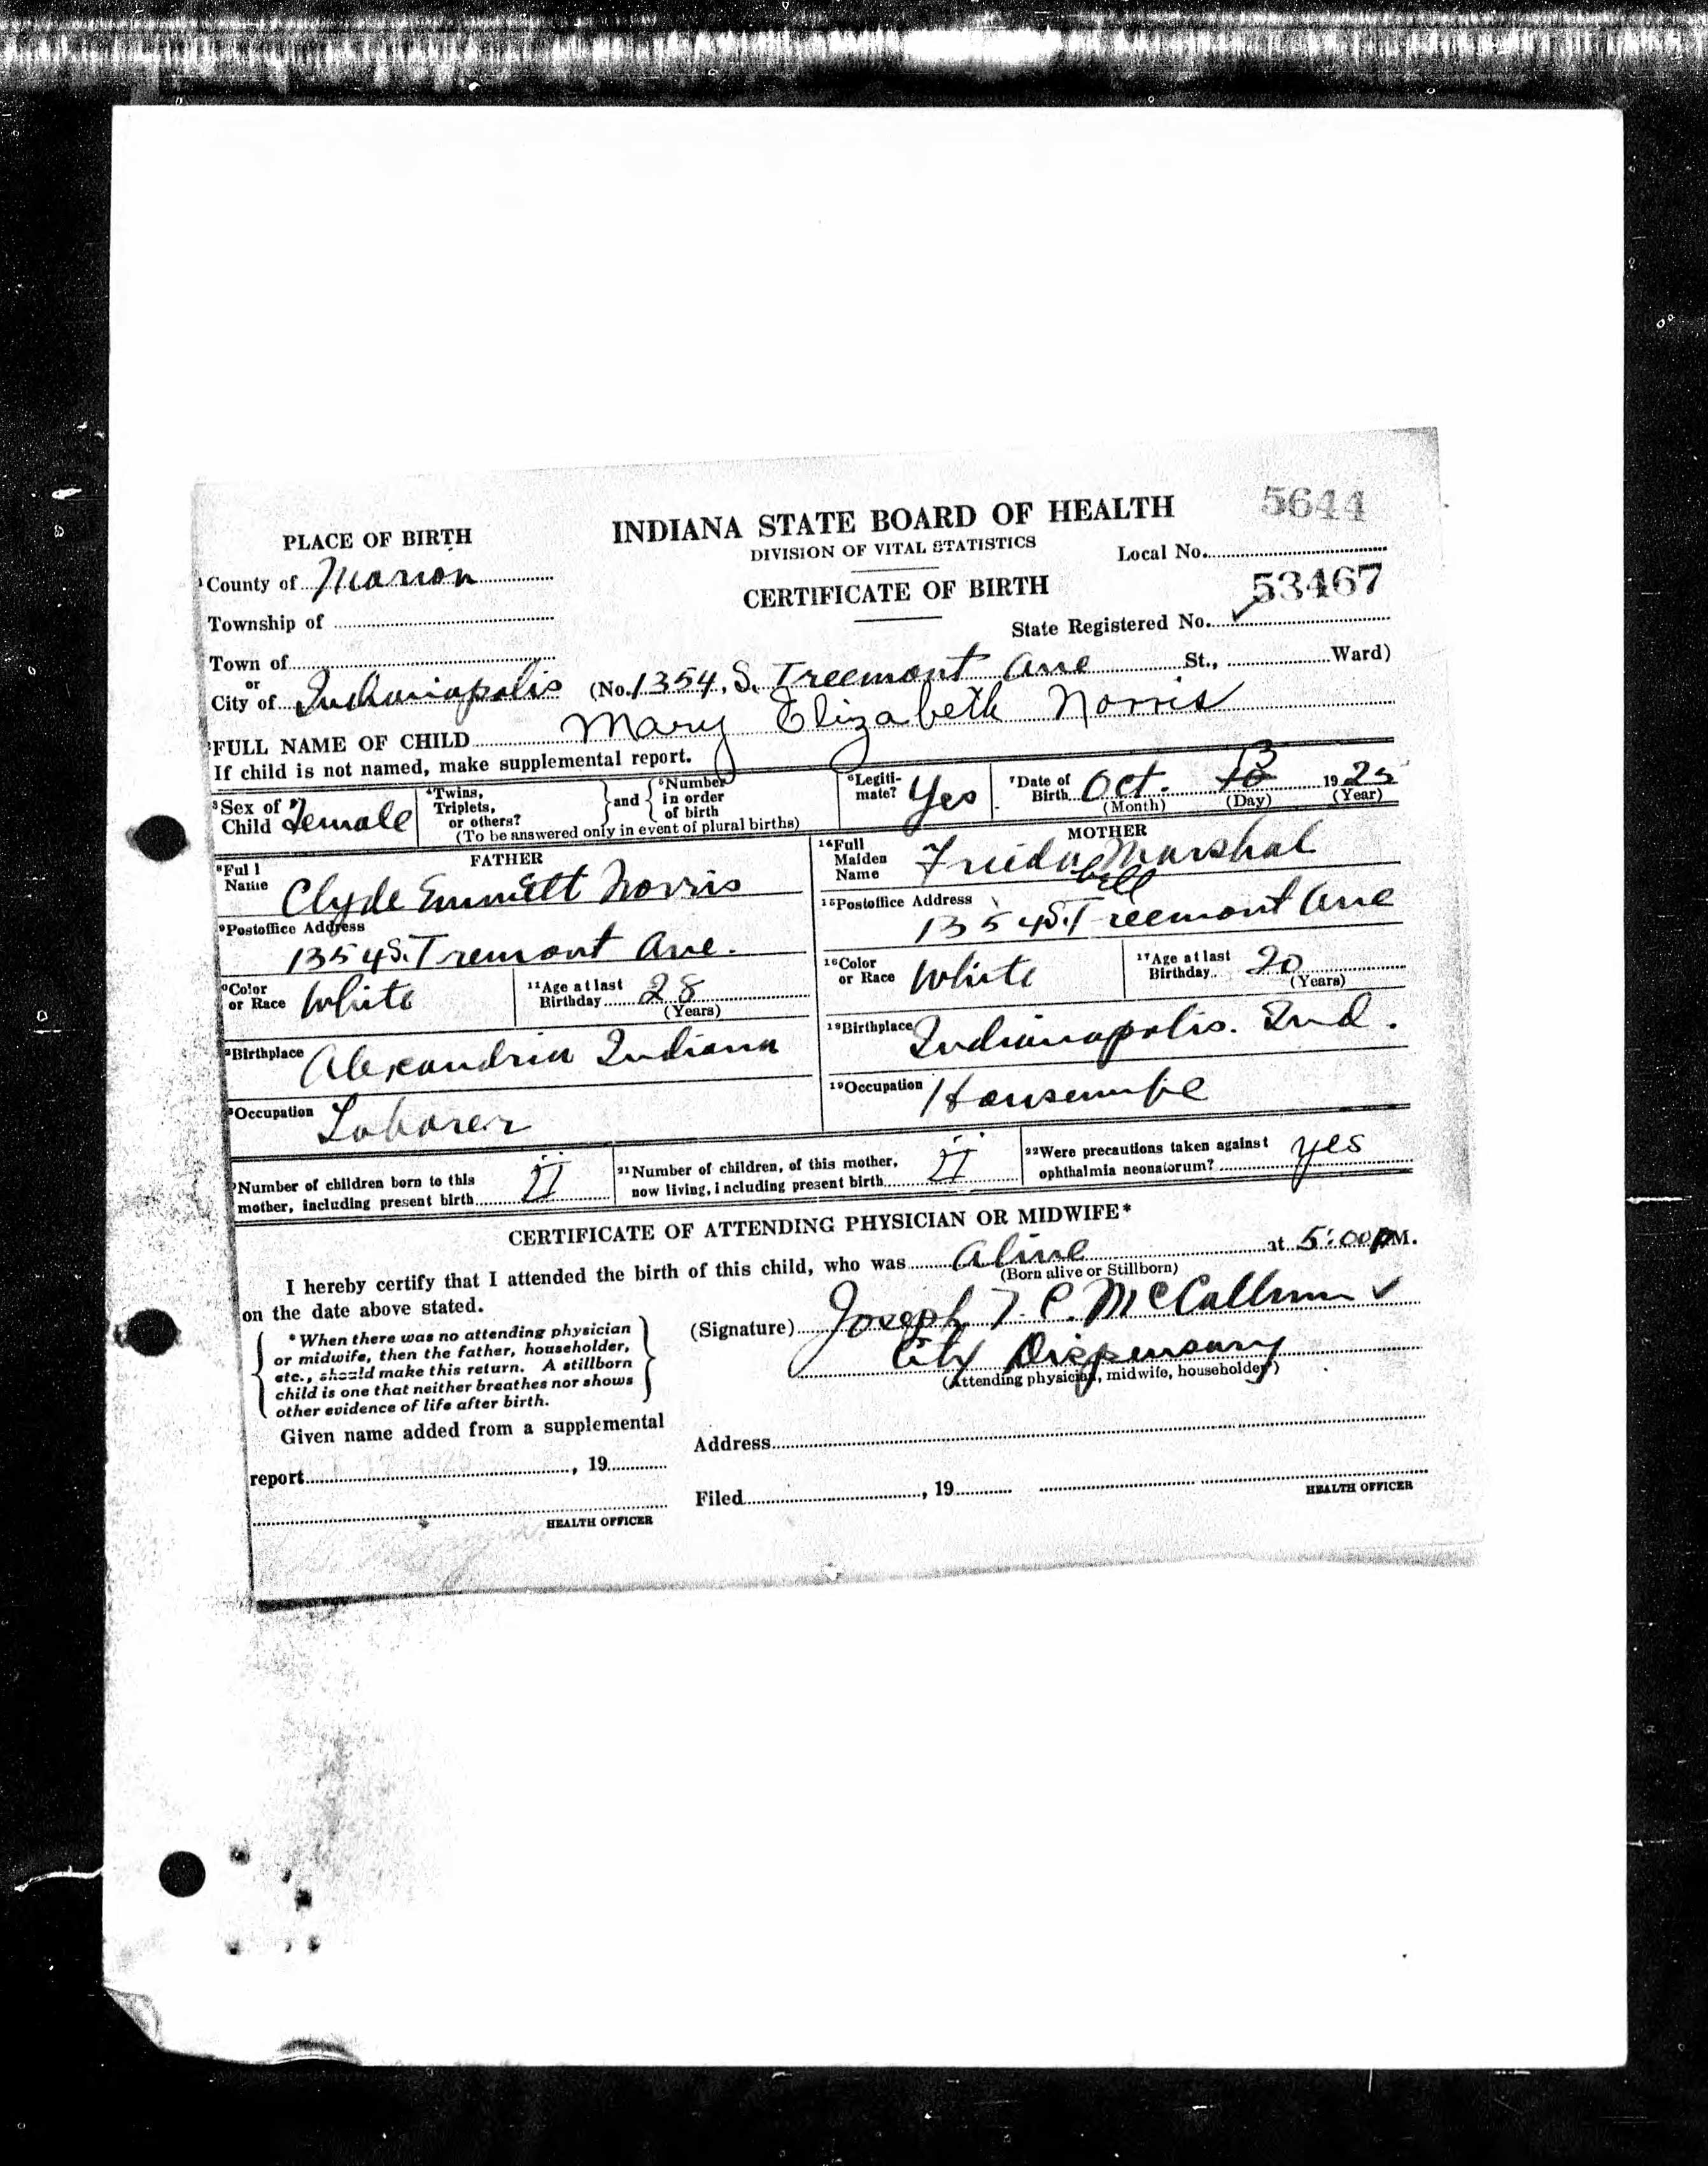 5644
INDIANA STATE BOARD OF HEALTH
PLACE OF BIRTH
DIVISION OF VITAL STATISTICS
Local No.
County of Marion
CERTIFICATE OF BIRTH
53467
Township of
State Registered No.
Town of
or
City of Indianapolis (No. 1354, S. Treemont Ave St., Ward)
FULL NAME OF CHILD Mary Elizabeth Norris
If child is not named, make supplemental report.
3 Sex of Child Female
4 Twins, Triplets, or others? and 5 Number in order of birth
(To be answered only in event of plural births)
6 Legitimate? Yes
7 Date of Birth Oct. 10 13 1925
(Month) (Day) (Year)
FATHER
8 Full Name Clyde Emmett Norris
9 Postoffice Address
1354 S. Tremont Ave.
Color or Race White
11 Age at last Birthday 28
(Years)
Birthplace Alexandria Indiana
Occupation Laborer
MOTHER
14 Full Maiden Name Frieda Marshal
bell
15 Postoffice Address
1354 S. Treemont Ave
16 Color or Race White
17 Age at last Birthday 20
(Years)
18 Birthplace Indianapolis. Ind.
19 Occupation Housewife
Number of children born to this mother, including present birth II
21 Number of children, of this mother, now living, including present birth II
22 Were precautions taken against ophthalmia neonatorum? yes
CERTIFICATE OF ATTENDING PHYSICIAN OR MIDWIFE*
I hereby certify that I attended the birth of this child, who was Alive at 5:00 P M.
(Born alive or Stillborn)
on the date above stated.
* When there was no attending physician
or midwife, then the father, householder,
etc., should make this return. A stillborn
child is one that neither breathes nor shows
other evidence of life after birth.
(Signature) Joseph T. C. McCallum
City Dispensary
(Attending physician, midwife, householder)
Given name added from a supplemental
report , 19
HEALTH OFFICER
Address
Filed , 19
HEALTH OFFICER